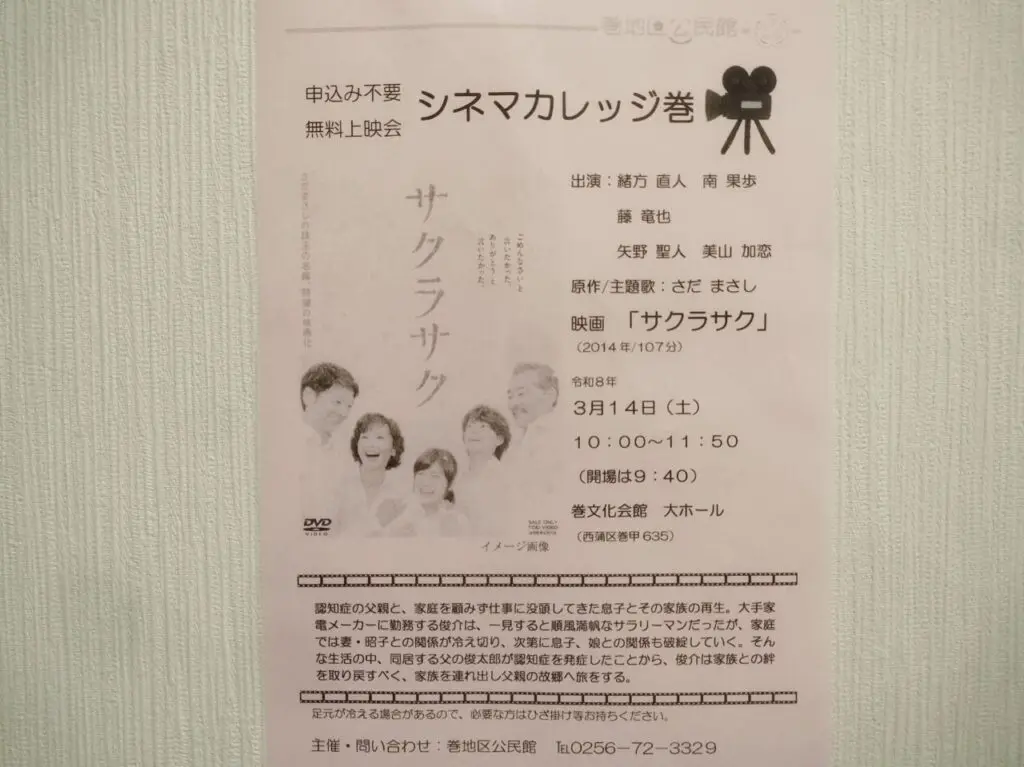 巻地区公民館
申込み不要
無料上映会
シネマカレッジ巻
出演：緒方 直人　南 果歩
藤 竜也
矢野 聖人　美山 加恋
原作/主題歌：さだ まさし
映画　「サクラサク」
（2014年/107分）
令和8年
3月14日（土）
10：00～11：50
（開場は9：40）
巻文化会館　大ホール
（西蒲区巻甲635）
サクラサク
ごめんなさいと
言いたかった、
ありがとうと
言いたかった。
DVD
VIDEO
イメージ画像
認知症の父親と、家庭を顧みず仕事に没頭してきた息子とその家族の再生。大手家
電メーカーに勤務する俊介は、一見すると順風満帆なサラリーマンだったが、家庭
では妻・昭子との関係が冷え切り、次第に息子、娘との関係も破綻していく。そん
な生活の中、同居する父の俊太郎が認知症を発症したことから、俊介は家族との絆
を取り戻すべく、家族を連れ出し父親の故郷へ旅をする。
足元が冷える場合があるので、必要な方はひざ掛け等お持ちください。
主催・問い合わせ：巻地区公民館　℡0256－72－3329